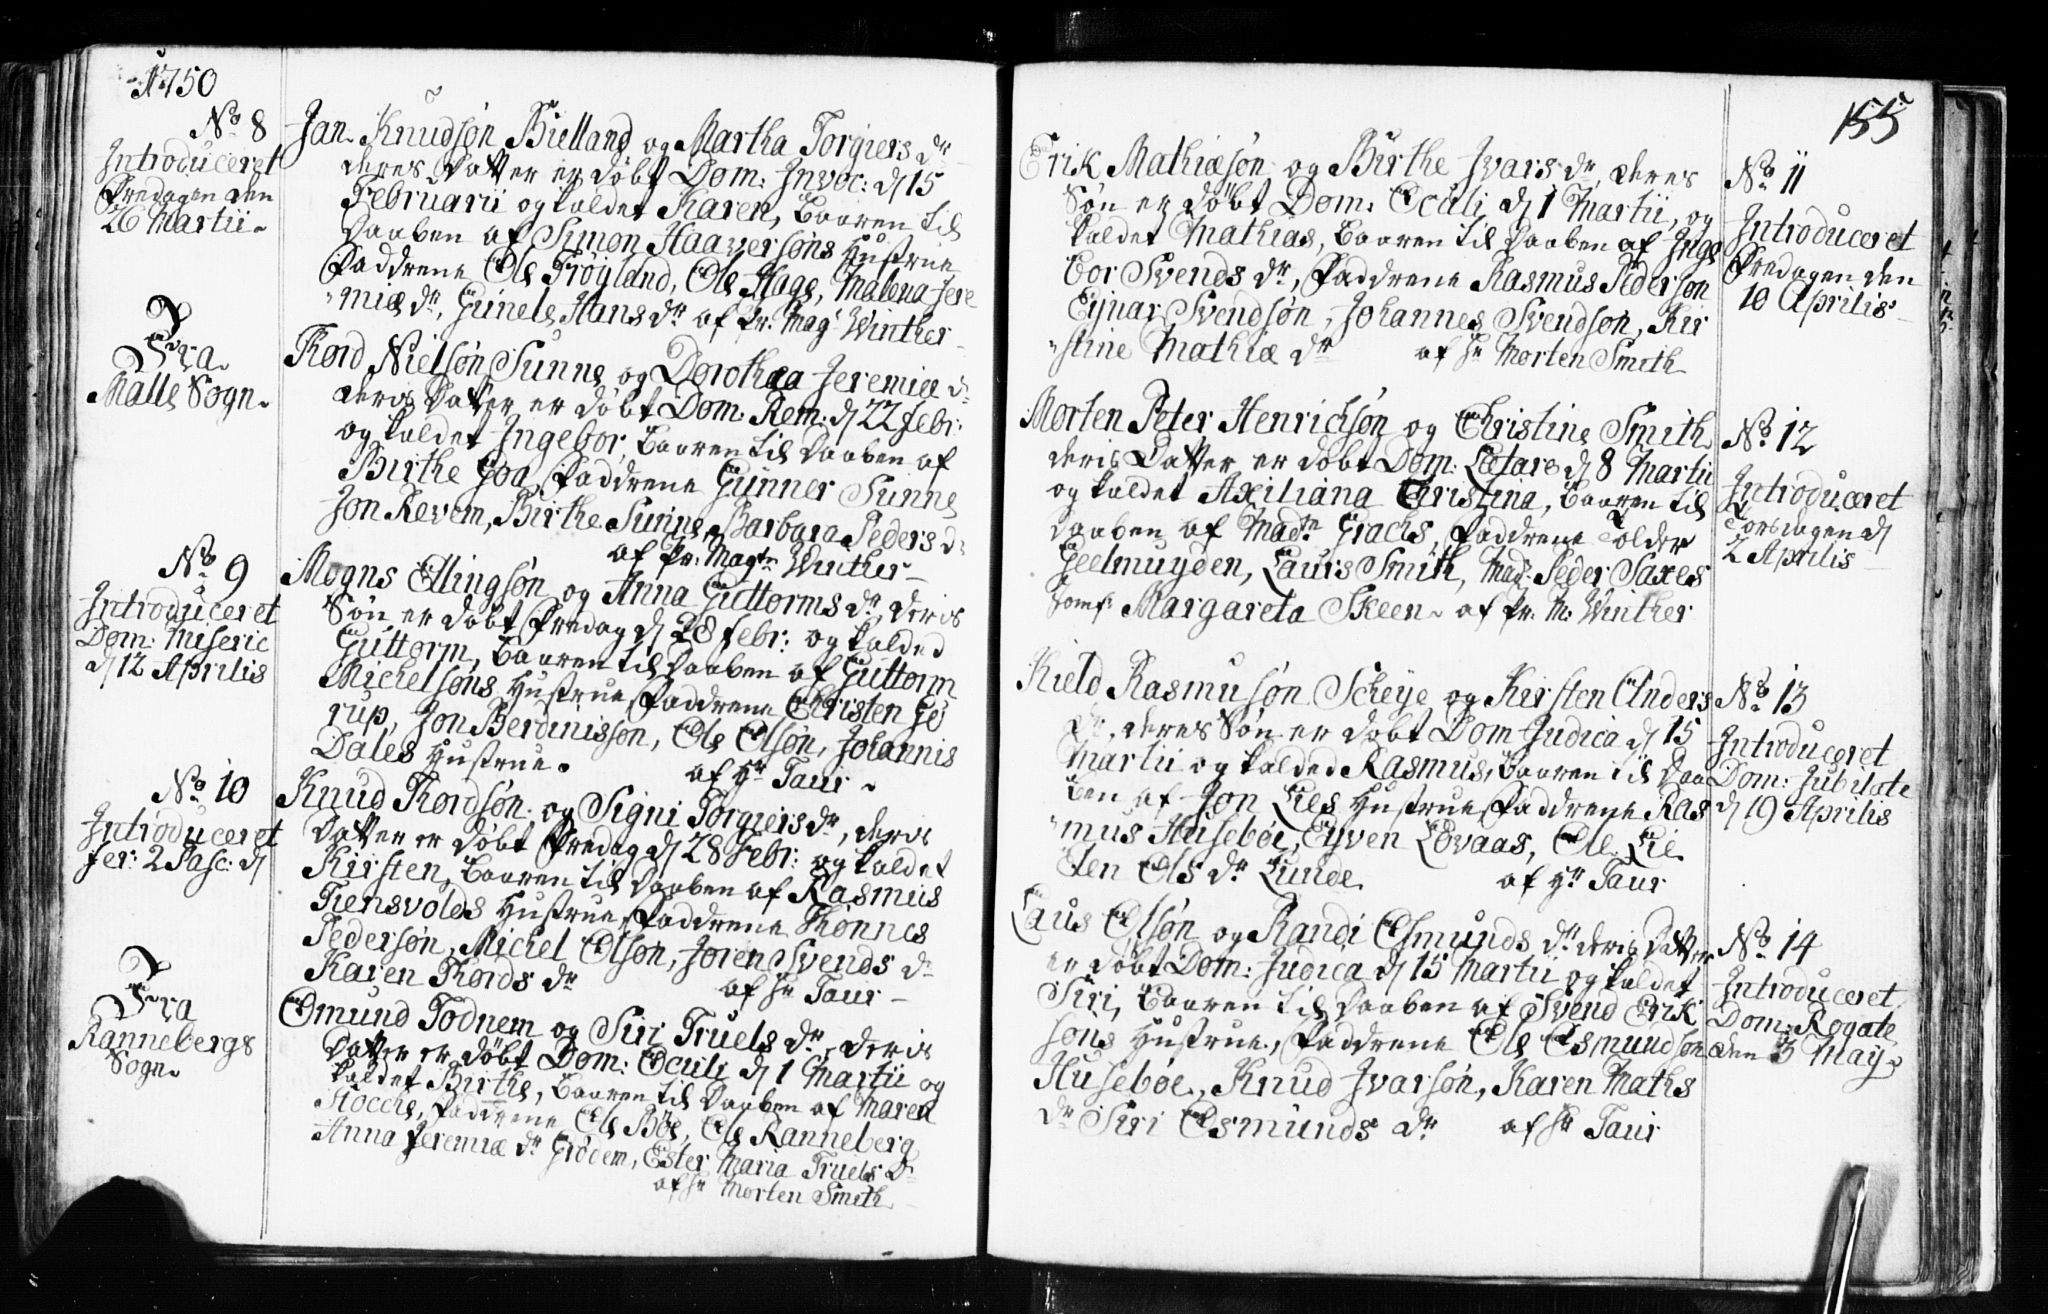 1750
No 8
Introduceret
Fredagen den
26 Martii
Jan Knudsøn Bielland og Martha Torgiers dr
deres Datter er døbt Dom: Invoc: d 15
Februarii og kaldet Karen, Baaren til
Daaben af Simon Haaversøns Hustrue
Faddrene Ole Trøgland, Ole Hage, Malena Jere
mie dr, Gunele Hans dr af Pr: Magr Winther
Fra
Malle Sogn
Thord Nielsøn Sunne og Dorothea Jeremiæ dr
deris Datter er døbt Dom: Rem: d 22 febr:
og kaldet Ingebor, Baaren til Daaben af
Birthe Goa, Faddrene Gunner Sunne
Jon Revem, Birthe Sunne, Barbara Peders dr
af Pr: Magr Winther
No 9
Introduceret
Dom: Miseric
d 12 Aprilis
Mogns Ellingsøn og Anna Guttorms dr, deris
Søn er døbt Fredag d 28 febr: og kalded
Guttorm, Baaren til Daaben af Guttorm
Michelsøns Hustrue, Faddrene Christen Je
rup, Jon Berdinissøn, Ole Olsøn, Johannis
Dales Hustrue. af Hr Taur
No 10
Introduceret
fer: 2 Pasc: d
Knud Thordsøn og Signi Torgiers dr, deris
Datter er døbt Fredag d 28 Febr: og kaldet
Kirsten, Baaren til Daaben af Rasmus
Tiensvolds Hustrue, Faddrene Thønnes
Pedersøn, Michel Olsøn, Joren Svends dr
Karen Thords dr af Hr Taur
Fra
Rannebergs
Sogn
Omund Todnem og Siri Truels dr, deris
Datter er døbt Dom: Oculi d 1 Martii og
kaldet Birthe, Baaren til Daaben af Maren
Stocche, Faddrene Ole Bøe, Ole Ranneberg
Anna Jeremiæ dr Grødem, Ester Maria Truels dr
af Hr Morten Smith
155
Erik Mathiæsøn og Birthe Ivars dr, deres
Søn er døbt Dom: Oculi d 1 Martii, og
kaldet Mathias, Baaren til Daaben af Inge
bor Svends dr, Faddrene Rasmus Pedersøn
Ejnar Svendsøn, Johannes Svendsøn, Kir
stine Mathiæ dr af Hr Morten Smith
No 11
Introduceret
Fredagen den
10 Aprilis
Morten Peter Henrichsøn og Christine Smith
deris Datter er døbt Dom: Lætare d 8 Martii
og kaldet Axiliana Christina, Baaren til
Daaben af Madm Grachs, Faddrene Tolder
Geelmuyden, Laurs Smith, Mad: Peder Saxes
Jomf: Margareta Skeen af Pr: M: Winther
No 12
Introduceret
Torsdagen d
2 Aprilis
Kield Rasmusøn Scheye og Kirsten Anders
dr, deres Søn er døbt Dom Judica d 15
Martii og kalded Rasmus, Baaren til Daa
ben af Jon Lies Hustrue, Faddrene Ras
mus Husebøe, Eyven Lovaas, Ole Lie
ten Ols dr Lunde af Hr Taur
No 13
Introduceret
Dom: Jubilate
d 19 Aprilis
Laus Olsøn og Randi Osmunds dr deris Datter
er døbt Dom: Judica d 15 Martii og kaldet
Siri, Baaren til Daaben af Svend Erik
søns Hustrue, Faddrene Ole Osmundsøn
Husebøe, Knud Ivarsøn, Karen Maths
dr Siri Osmunds dr af Hr Taur
No 14
Introduceret
Dom: Rogate
den 3 May